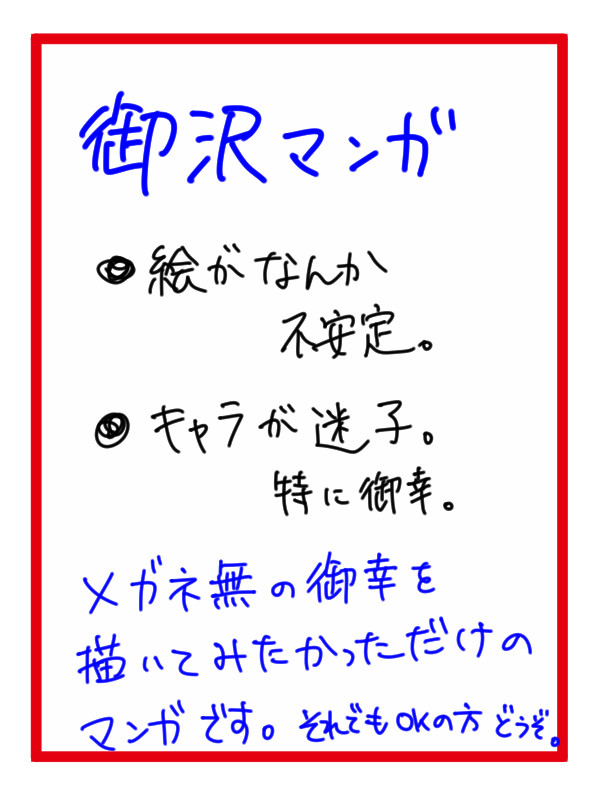 御沢マンガ
●絵がなんか
不安定。
●キャラが迷子。
特に御幸。
メガネ無の御幸を
描いてみたかっただけの
マンガです。それでもOKの方どうぞ。